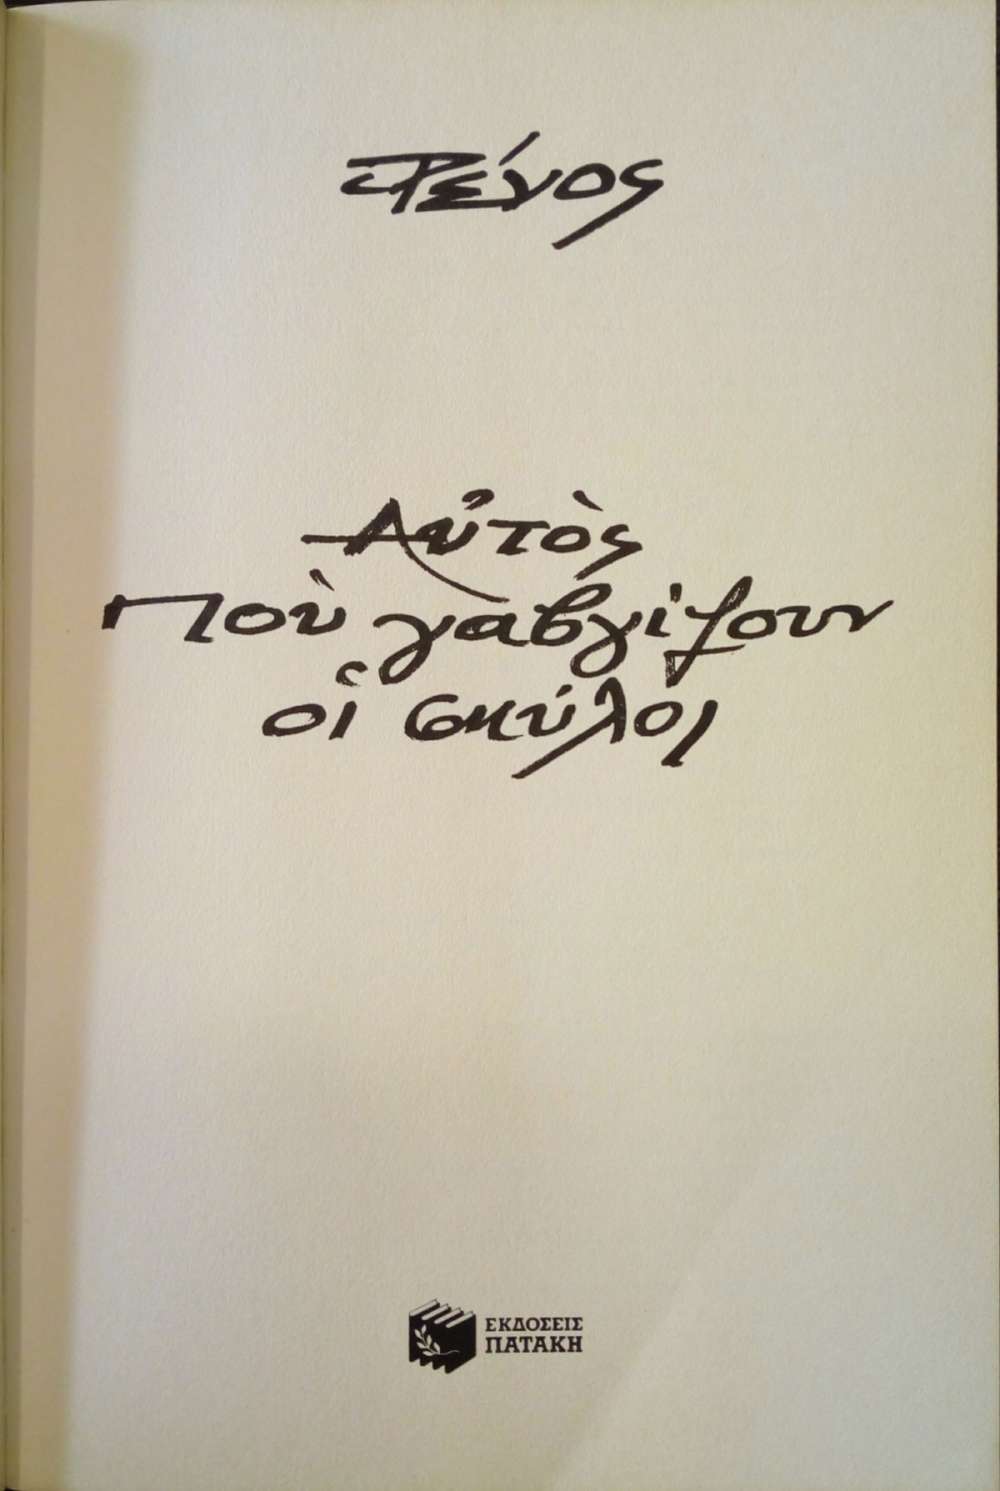 Ρένος
Αὐτὸς
Ποὺ γαβγίζουν
οἱ σκύλοι
ΕΚΔΟΣΕΙΣ
ΠΑΤΑΚΗ